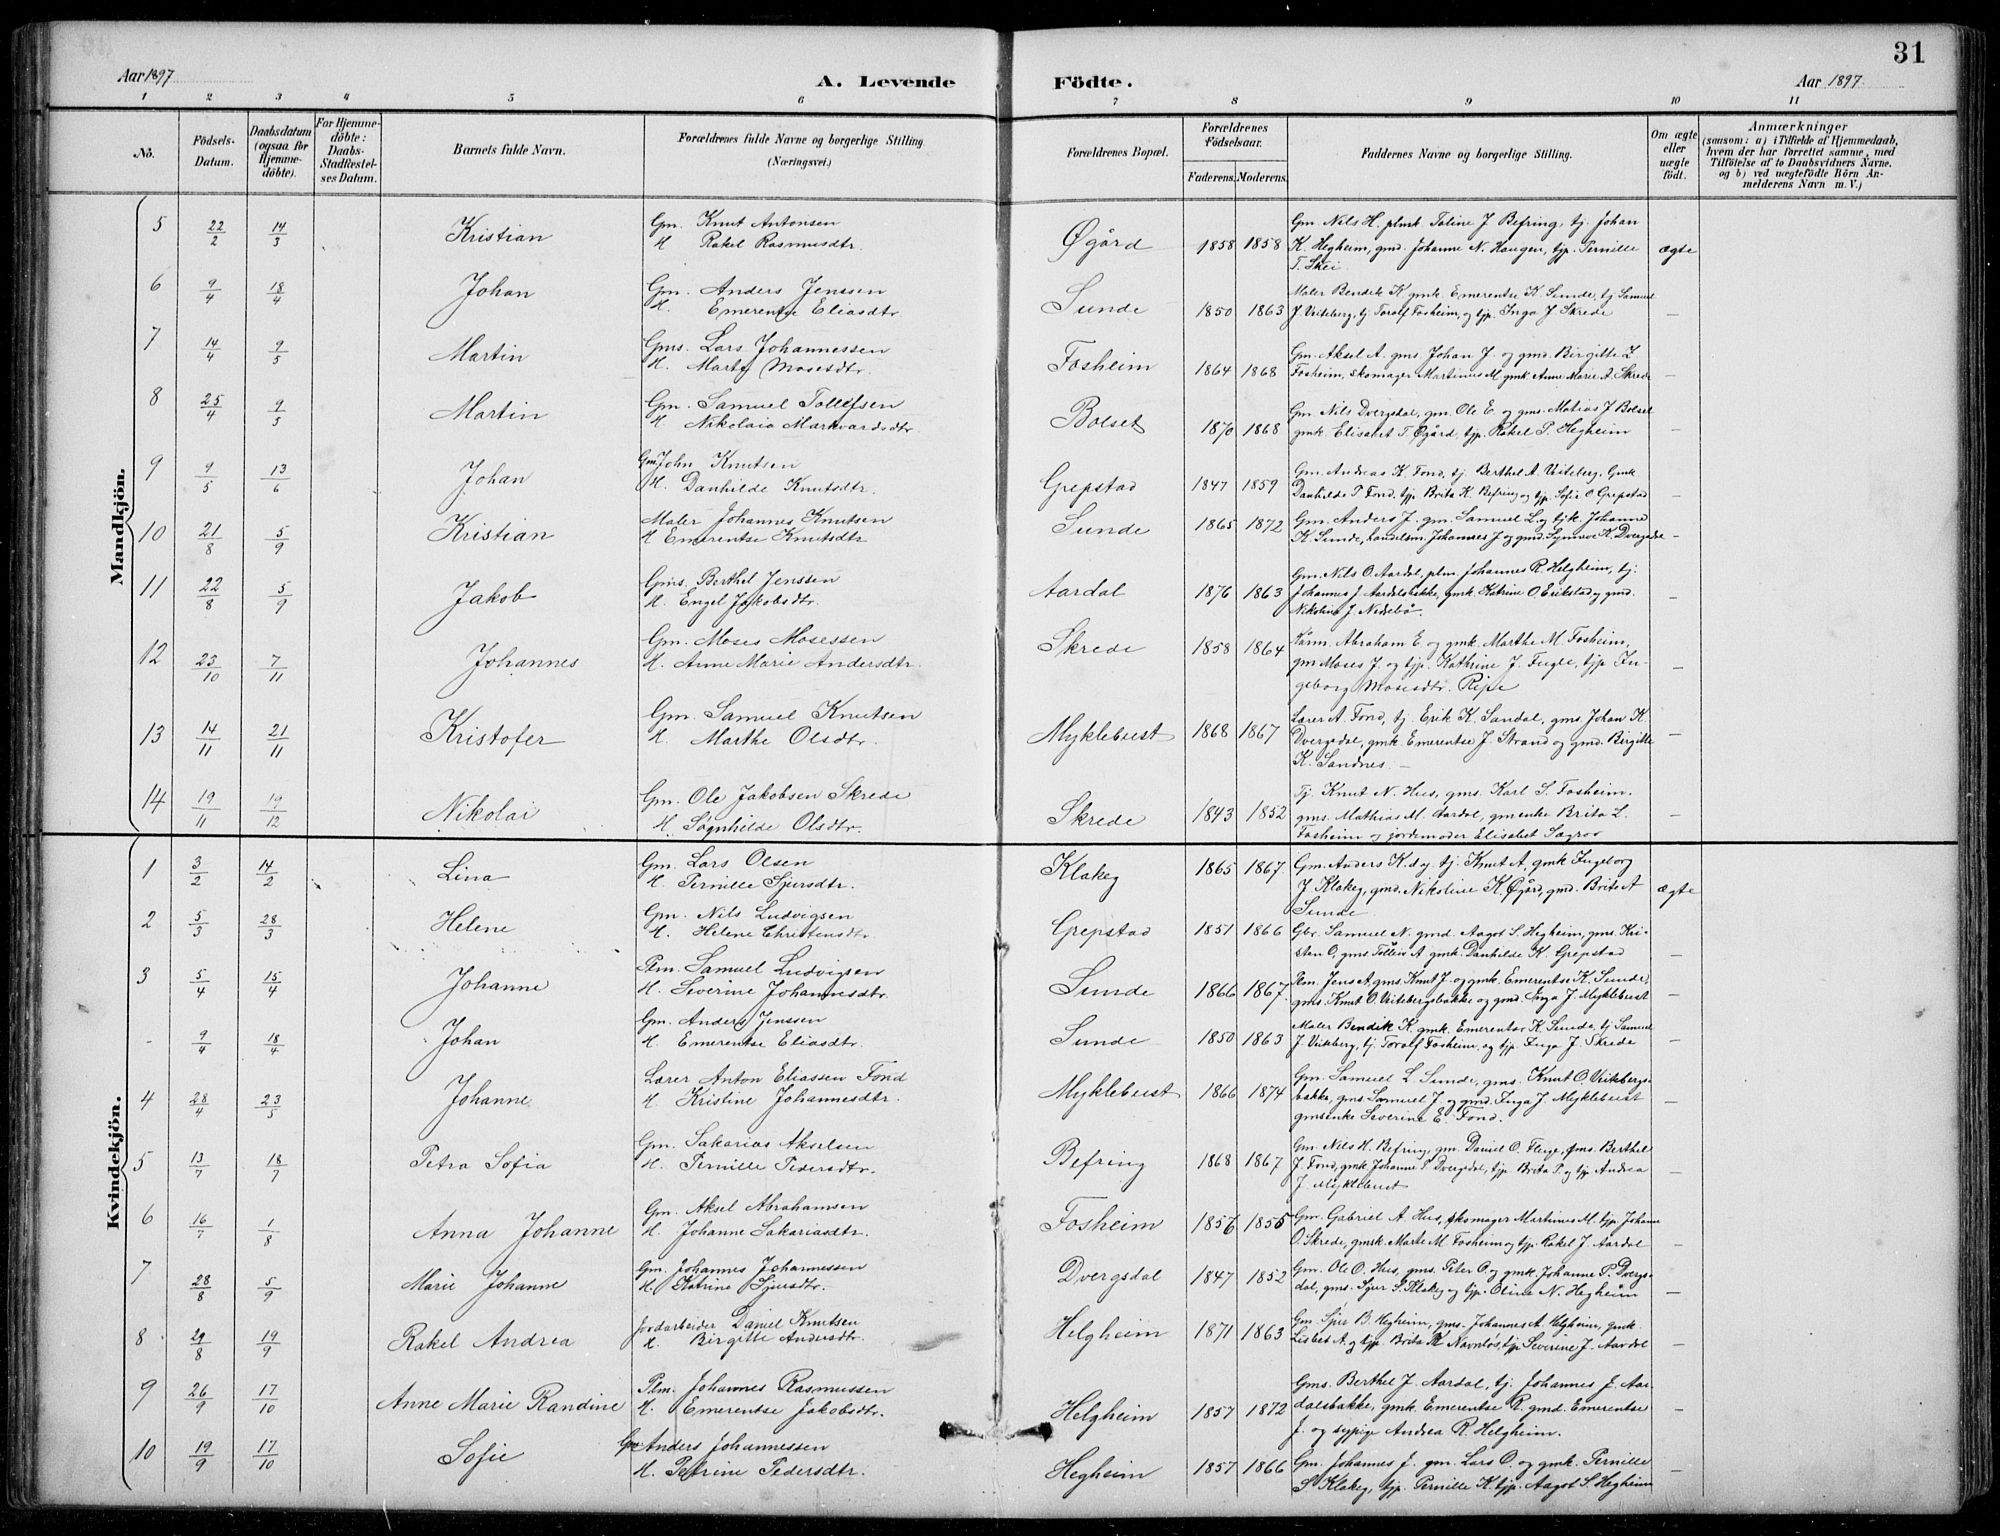 31
Aar 1897
A. Levende Födte.
Aar 1897
1 2 3 4 5 6 7 8 9 10 11
No. Födsels-Datum. Daabsdatum (ogsaa for Hjemmedöbte). For Hjemmedöbte: Daabs-Stadfæstelses Datum. Barnets fulde Navn. Forældrenes fulde Navne og borgerlige Stilling (Næringsvei). Forældrenes Bopæl. Forældrenes Födselsaar. Faderens. Moderens. Faddernes Navne og borgerlige Stilling. Om ægte eller uægte födt. Anmærkninger (saasom: a) i Tilfælde af Hjemmedaab, hvem der har forrettet samme, med Tilföielse af to Daabsvidners Navne, og b) ved uægtefödte Börn Anmelderens Navn m. V.)
Mandkjön.
5 22/2 14/3 Kristian Gm. Knut Antonsen Øgård 1858 1858 Gm Nils H. plmk Taline J Befring, tj Johan
H Rakel Rasmusdtr. K. Hegheim, gmd. Johanne N. Haugen, tjp. Pernille ægte
T. Skei.
6 9/4 18/4 Johan Gm. Anders Jenssen Sunde 1850 1863 Maler Bendik K gmk. Emerentse K. Sunde, tj Samuel
H. Emerentse Eliasdtr J Viteberg, tj Toralf Fosheim, og tjp. Inga J Skrede —
7 14/4 9/5 Martin Gms. Lars Johannessen Fosheim 1864 1868 Gm. Aksel A. gms Johan J. og gmd. Birgitte L
H. Marte Mosesdtr. Fosheim, skomager Martinus M gmk Anne Marie A. Skrede —
8 25/4 9/5 Martin Gm. Samuel Tollefsen Bolset 1870 1868 Gm Nils Dvergsdal, gm. Ole E. og gms. Matias J Bolset
H Nikolaia Markvardsdtr. gmk. Elisabet T. Øgård, tjp. Rakel P. Hegheim —
9 9/5 13/6 Johan Gm John Knutsen Grepstad 1847 1859 Gm. Andreas K. Fond, tj. Berthel A. Viteberg, Gmk
H. Danhilde Knutsdtr. Danhilde P. Fond, tjp Brita K. Befring og tjp. Sofie O Grepstad —
10 21/8 5/9 Kristian Maler Johannes Knutsen Sunde 1865 1872 Gm. Anders J. gm. Samuel L. og tjk. Johanne
H Emerentse Knutsdtr K. Sunde, handelsm. Johannes J og gmd. Synneve K. Dvergsdal —
11 22/8 5/9 Jakob Gms. Berthel Jenssen Aardal 1876 1863 Gm. Nils O. Aardal, plm. Johannes R. Helgheim, tj.
H. Engel Jakobsdtr. Johannes J. Aardalsbakke, gmk. Katrine O. Eikstad og gmd.
Nikoline J. Nedrebø. —
12 23/10 7/11 Johannes Gm. Moses Mosessen Skrede 1858 1864 Abraham E. og gmk. Marthe M. Fosheim,
H. Anne Marie Andersdtr. gm Moses J. og tjp. Kathrine J. Fugle, tjp. In-
geborg Mosesdtr. Ripe —
13 14/11 21/11 Kristofer Gm. Samuel Knutsen Myklebust 1868 1867 Lærer A. Fond, tj. Erik K. Sandal, gms. Johan K.
H. Marthe Olsdtr. Dvergsdal, gmk. Emerentse J. Strand og gmd. Birgitte —
K. Sandnes. —
14 19/11 19/12 Nikolai Gm. Ole Jakobsen Skrede Skrede 1843 1852 Tj. Knut N. Hus, gms. Karl S. Fosheim.
H. Søgnhilde Olsdtr. gms. Mathias M. Aardal, gmenke Brita L. —
Fosheim og jordemoder Elisabet Sægrov
Kvindekjön.
1 3/2 14/2 Lina Gm. Lars Olsen Klakeg 1865 1867 Gm. Anders K. dy. tj. Knut A, gmk Ingeborg
H. Pernille Sjursdtr. J Klakeg, gmd. Nikoline K. Øgård, gmd. Brite A ægte
Sunde
2 5/3 28/3 Helene Gm. Nils Ludvigsen Grepstad 1851 1866 Gbr. Samuel N. gmd. Aagot S. Hegheim, gms. Kri-
H. Helene Christensdtr sten O, gms Tolleiv A gmk. Danhilde K. Grepstad —
3 5/4 15/4 Johanne Plm. Samuel Ludvigsen Sunde 1866 1867 Plm. Jens A, gms. Knut J. og gmk. Emerentse K. Sunde,
H. Severine Johannesdtr gms. Knut O. Vitebergsbakke og gmd. Inga J. Myklebust —
- 9/4 18/4 Johan Gm. Anders Jenssen Sunde 1850 1863 Maler Bendik K. gmk. Emerentse K Sunde, tj Samuel
H. Emerentse Eliasdtr. J. Viteberg, tj. Toralf Fosheim, og tjp. Inga J. Skrede —
4 28/4 23/5 Johanne Lærer Anton Eliassen Fond Myklebust 1866 1874 Gm. Samuel L. Sunde, gms. Knut O. Vitebergs-
H. Kristine Johannesdtr. bakke, gms Samuel J. og gmd. Inga J. Myklebust —
gmsenke Severine E. Fond.
5 13/7 18/7 Petra Sofia Gm. Sakarias Akselsen Befring 1868 1867 Gm. Nils H. Befring, gm. Daniel O. Fluge, gms. Berthel
H. Pernille Pedersdtr. J. Fond, gmk. Johanne P. Dvergsdal, tjp. Brita P. og tjp. Andrea —
J. Myklebust
6 16/7 1/8 Anna Johanne Gm. Aksel Abrahamsen Fosheim 1856 1855 Gm. Gabriel A Hus, skomager Martinus M. tjp. Johanne
H. Johanne Sakariasdtr. O. Skrede, gmsk. Marte M. Fosheim og tjp. Rakel J. Aardal —
7 28/8 5/9 Marie Johanne Gm. Johannes Johannessen Dvergsdal 1847 1852 Gm. Ole O. Hus, gms. Peter O. og gmk. Johanne P. Dvergs-
H. Katrine Sjursdtr. dal, gms. Sjur S. Klakeg og tjp. Oline N. Hegheim —
8 29/8 19/9 Rakel Andrea Jordarbeider Daniel Knutsen Helgheim 1871 1863 Gm. Sjur B. Hegheim, gms. Johannes A. Helgheim, gmk.
H. Birgitte Andersdtr. Lisbet A. og tjp. Brita K Navnløs, tjp Severine J. Aardal —
9 26/9 17/10 Anne Marie Randine Plm. Johannes Rasmussen Helgheim 1857 1872 Gms. Berthel J. Aardal, tj. Johannes J. Aar-
H. Emerentse Jakobsdtr. dalsbakke, gmk. Emerentse R. gmd. Emerentse —
J. og sypige Andrea R. Helgheim.
10 19/9 17/10 Sofie Gm Anders Johannessen Hegheim 1857 1866 Gm. Johannes J. gm. Lars O. og gmk. Pernille
H. Petrine Pedersdtr. S Klakeg, tjp. Pernille K. tjp. Aagot S. Hegheim —